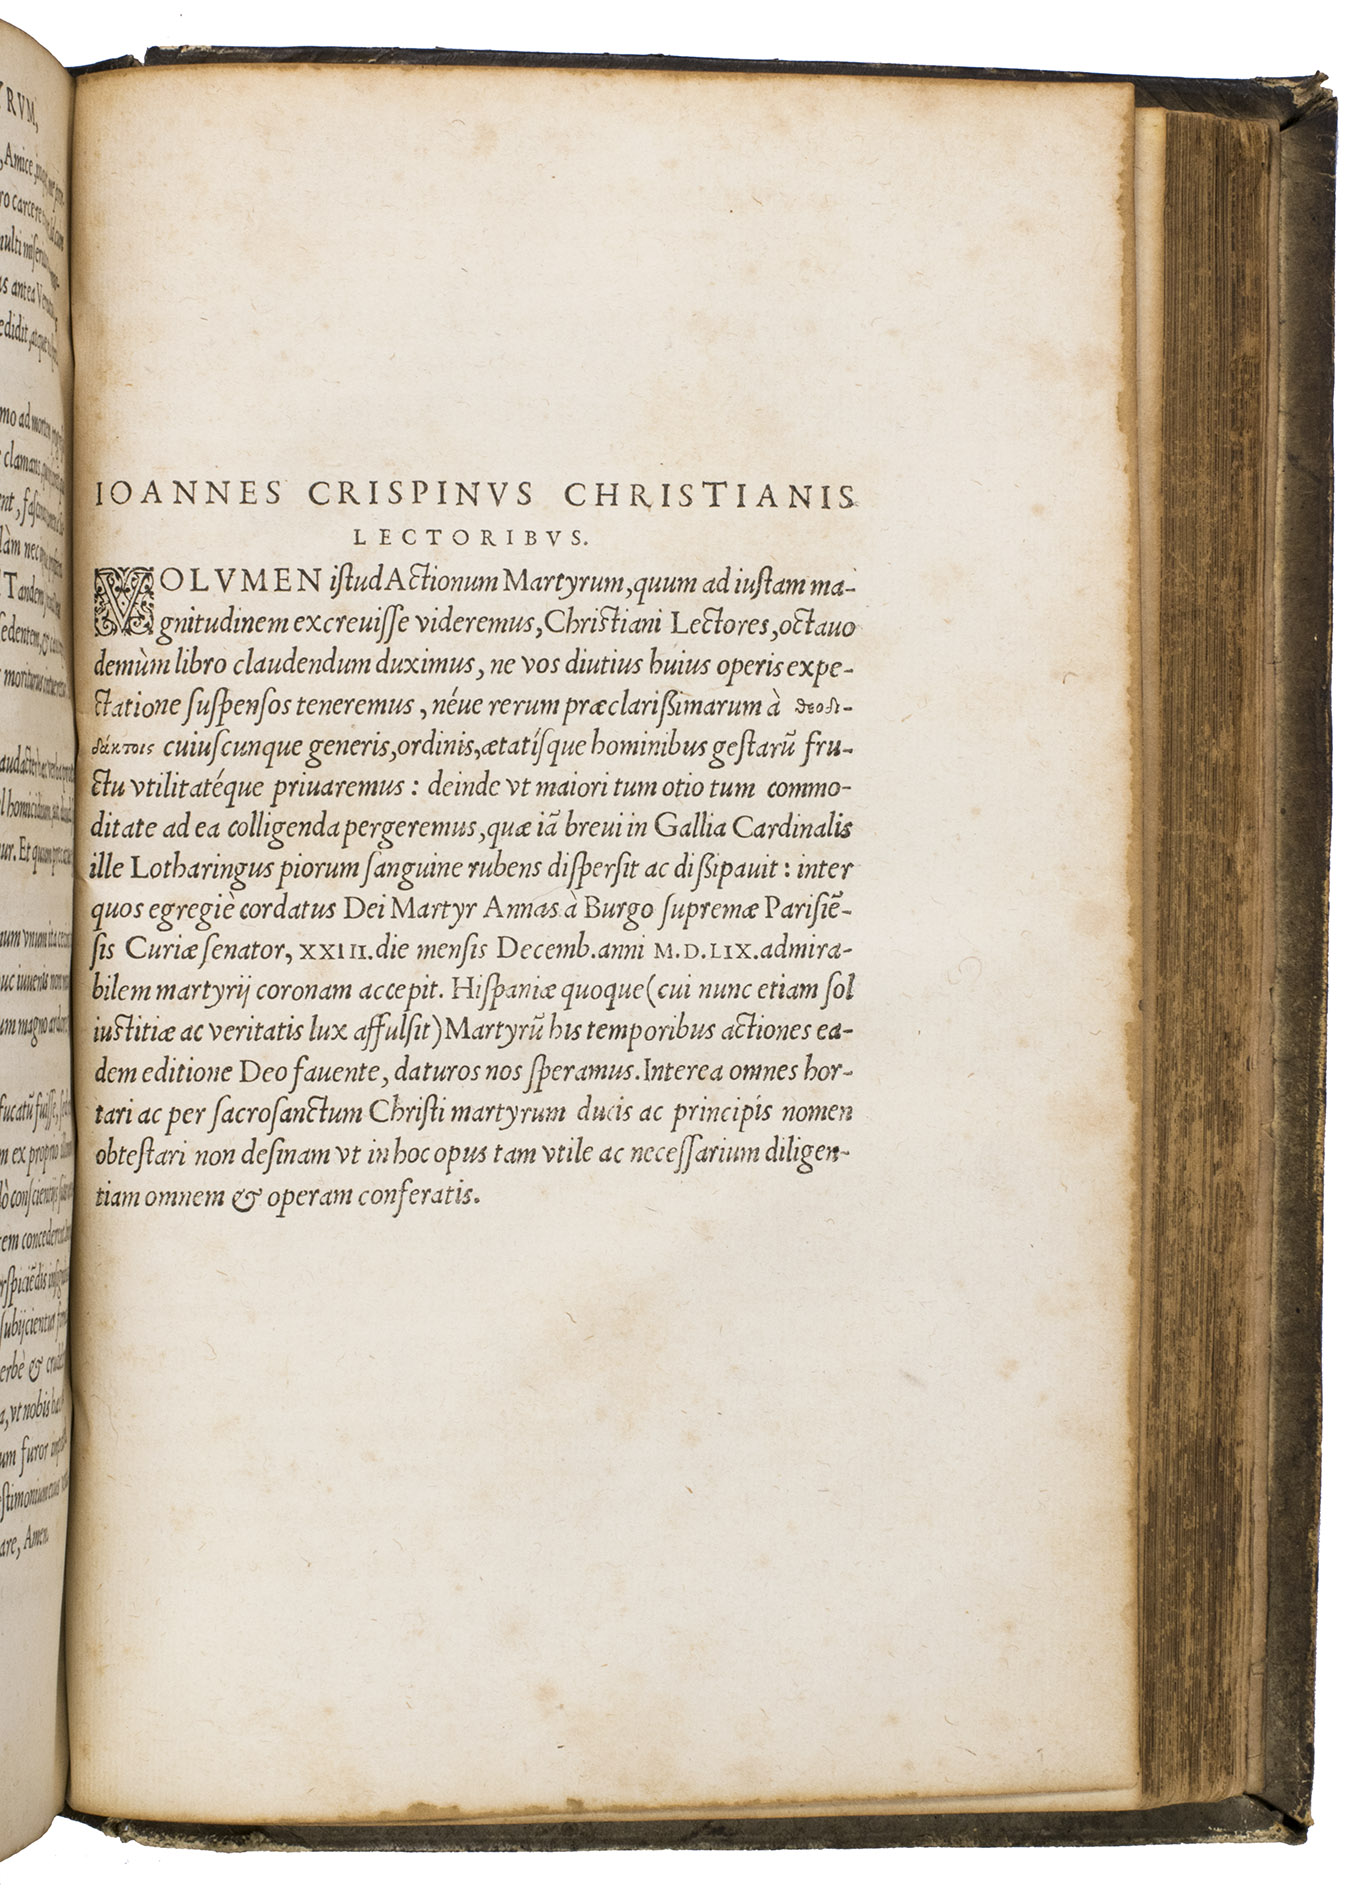 YRVM,
Amice
ro carcere
multi
as antea
edidit, atque
mo ad mortem
clamans
ent,
làm nec
Tandem
sedentem, &
moriturus
homicidium
ur. Et quum
num vnum ita
nuc iuuenis non
um magno
fucatū fuiße,
m ex proprio
tem concederet
subijcientia
erbè & crude
a, vt nobis
um furor
are, Amen.
IOANNES CRISPINVS CHRISTIANIS
LECTORIBVS.
VOLVMEN istud Actionum Martyrum, quum ad iustam ma-
gnitudinem excreuisse videremus, Christiani Lectores, octauo
demùm libro claudendum duximus, ne vos diutius huius operis expe-
ctatione suspensos teneremus, néue rerum præclarißimarum à θεοδι-
δάκτοις cuiuscunque generis, ordinis, ætatísque hominibus gestarū fru-
ctu vtilitatéque priuaremus: deinde vt maiori tum otio tum commo-
ditate ad ea colligenda pergeremus, quæ iā breui in Gallia Cardinalis
ille Lotharingus piorum sanguine rubens dispersit ac dißipauit: inter
quos egregiè cordatus Dei Martyr Annas à Burgo supremæ Parisiē-
sis Curiæ senator, XXIII. die mensis Decemb. anni M.D.LIX. admira-
bilem martyrij coronam accepit. Hispaniæ quoque (cui nunc etiam sol
iustitiæ ac veritatis lux affulsit) Martyrū his temporibus actiones ea-
dem editione Deo fauente, daturos nos speramus. Interea omnes hor-
tari ac per sacrosanctum Christi martyrum ducis ac principis nomen
obtestari non desinam vt in hoc opus tam vtile ac necessarium diligen-
tiam omnem & operam conferatis.